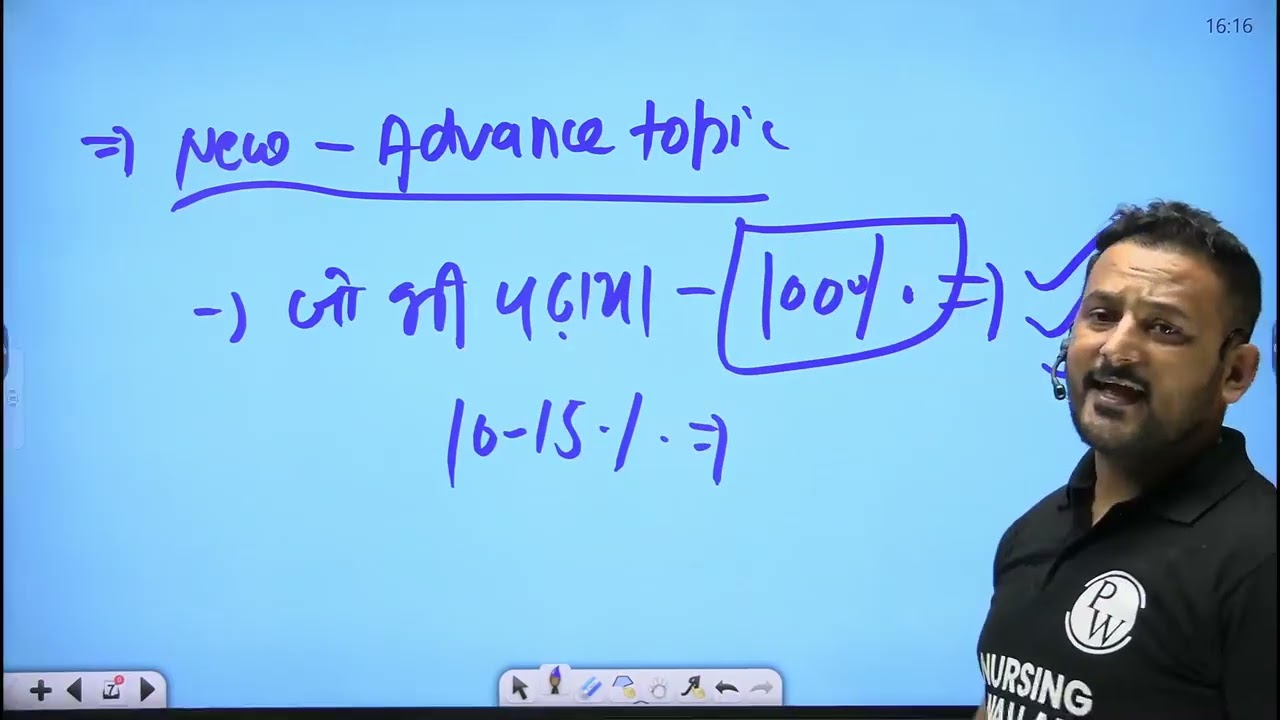 16:16
⇒ New - Advance topic
→ जो भी पढ़ाया - 100% . ⇒
10-15 % . ⇒
7
PW
NURSING